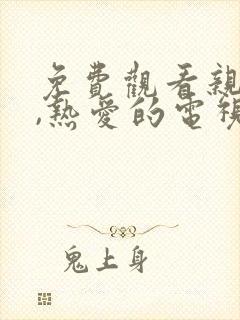 免費觀看親
,熱愛的電視
鬼上身